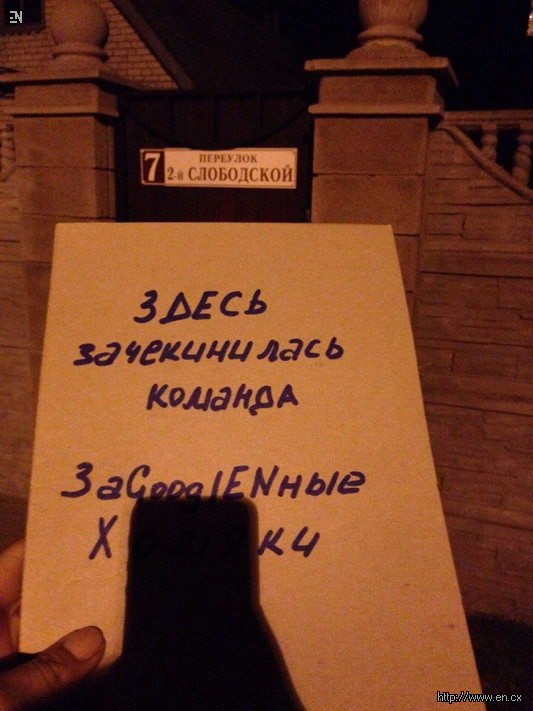 EN
7 ПЕРЕУЛОК
2-й СЛОБОДСКОЙ
ЗДЕСЬ
зачекинилась
команда
ЗаGooglENные
http://www.en.cx